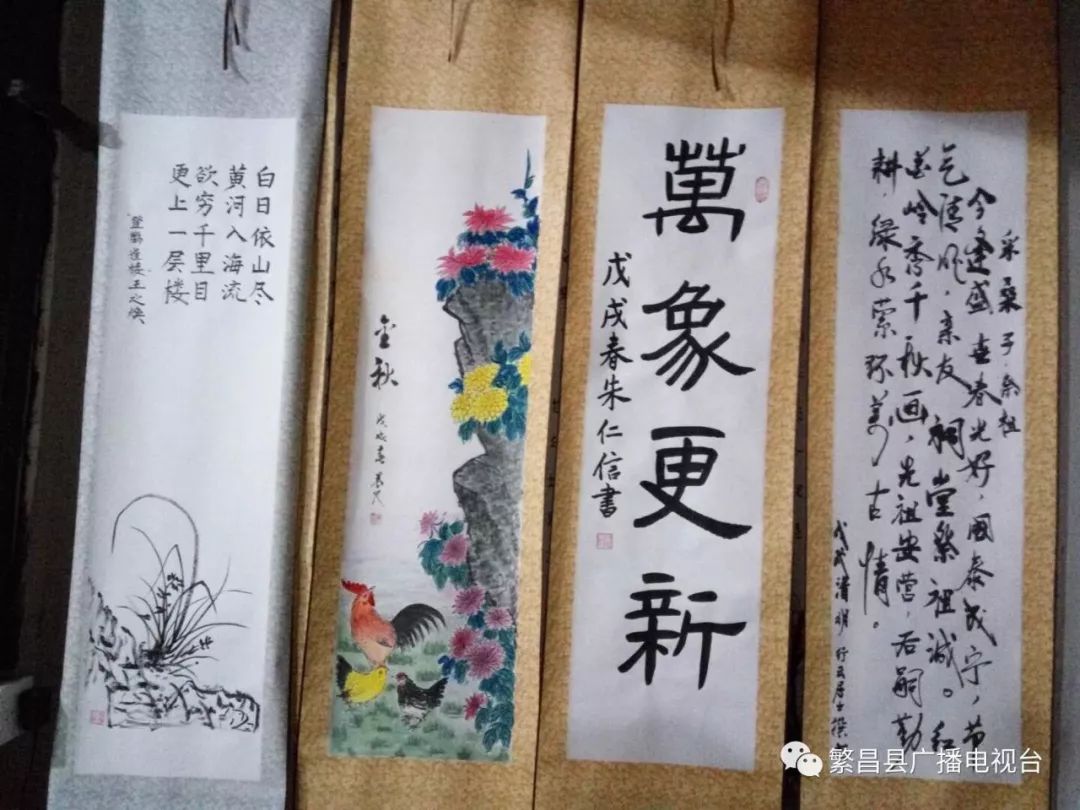 白日依山尽
黄河入海流
欲穷千里目
更上一层楼
登鹳雀楼王之涣
金秋
戊戌春
萬象更新
戊戌春朱仁信書
采桑子·祭祖
今逢盛世春光好，国泰民宁，节
气清明，亲友祠堂祭祖诚。红
花岭秀千秋画，先祖安营，后嗣勤
耕，绿水萦环万古情。
戊戌清明 行云居士撰
繁昌县广播电视台